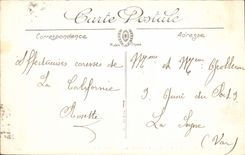 Carte Postale
Correspondance
Adresse
Affectueuses caresses de
La Californie
Mme et Mr
9 Quai du Port
La Seyne
(Var)